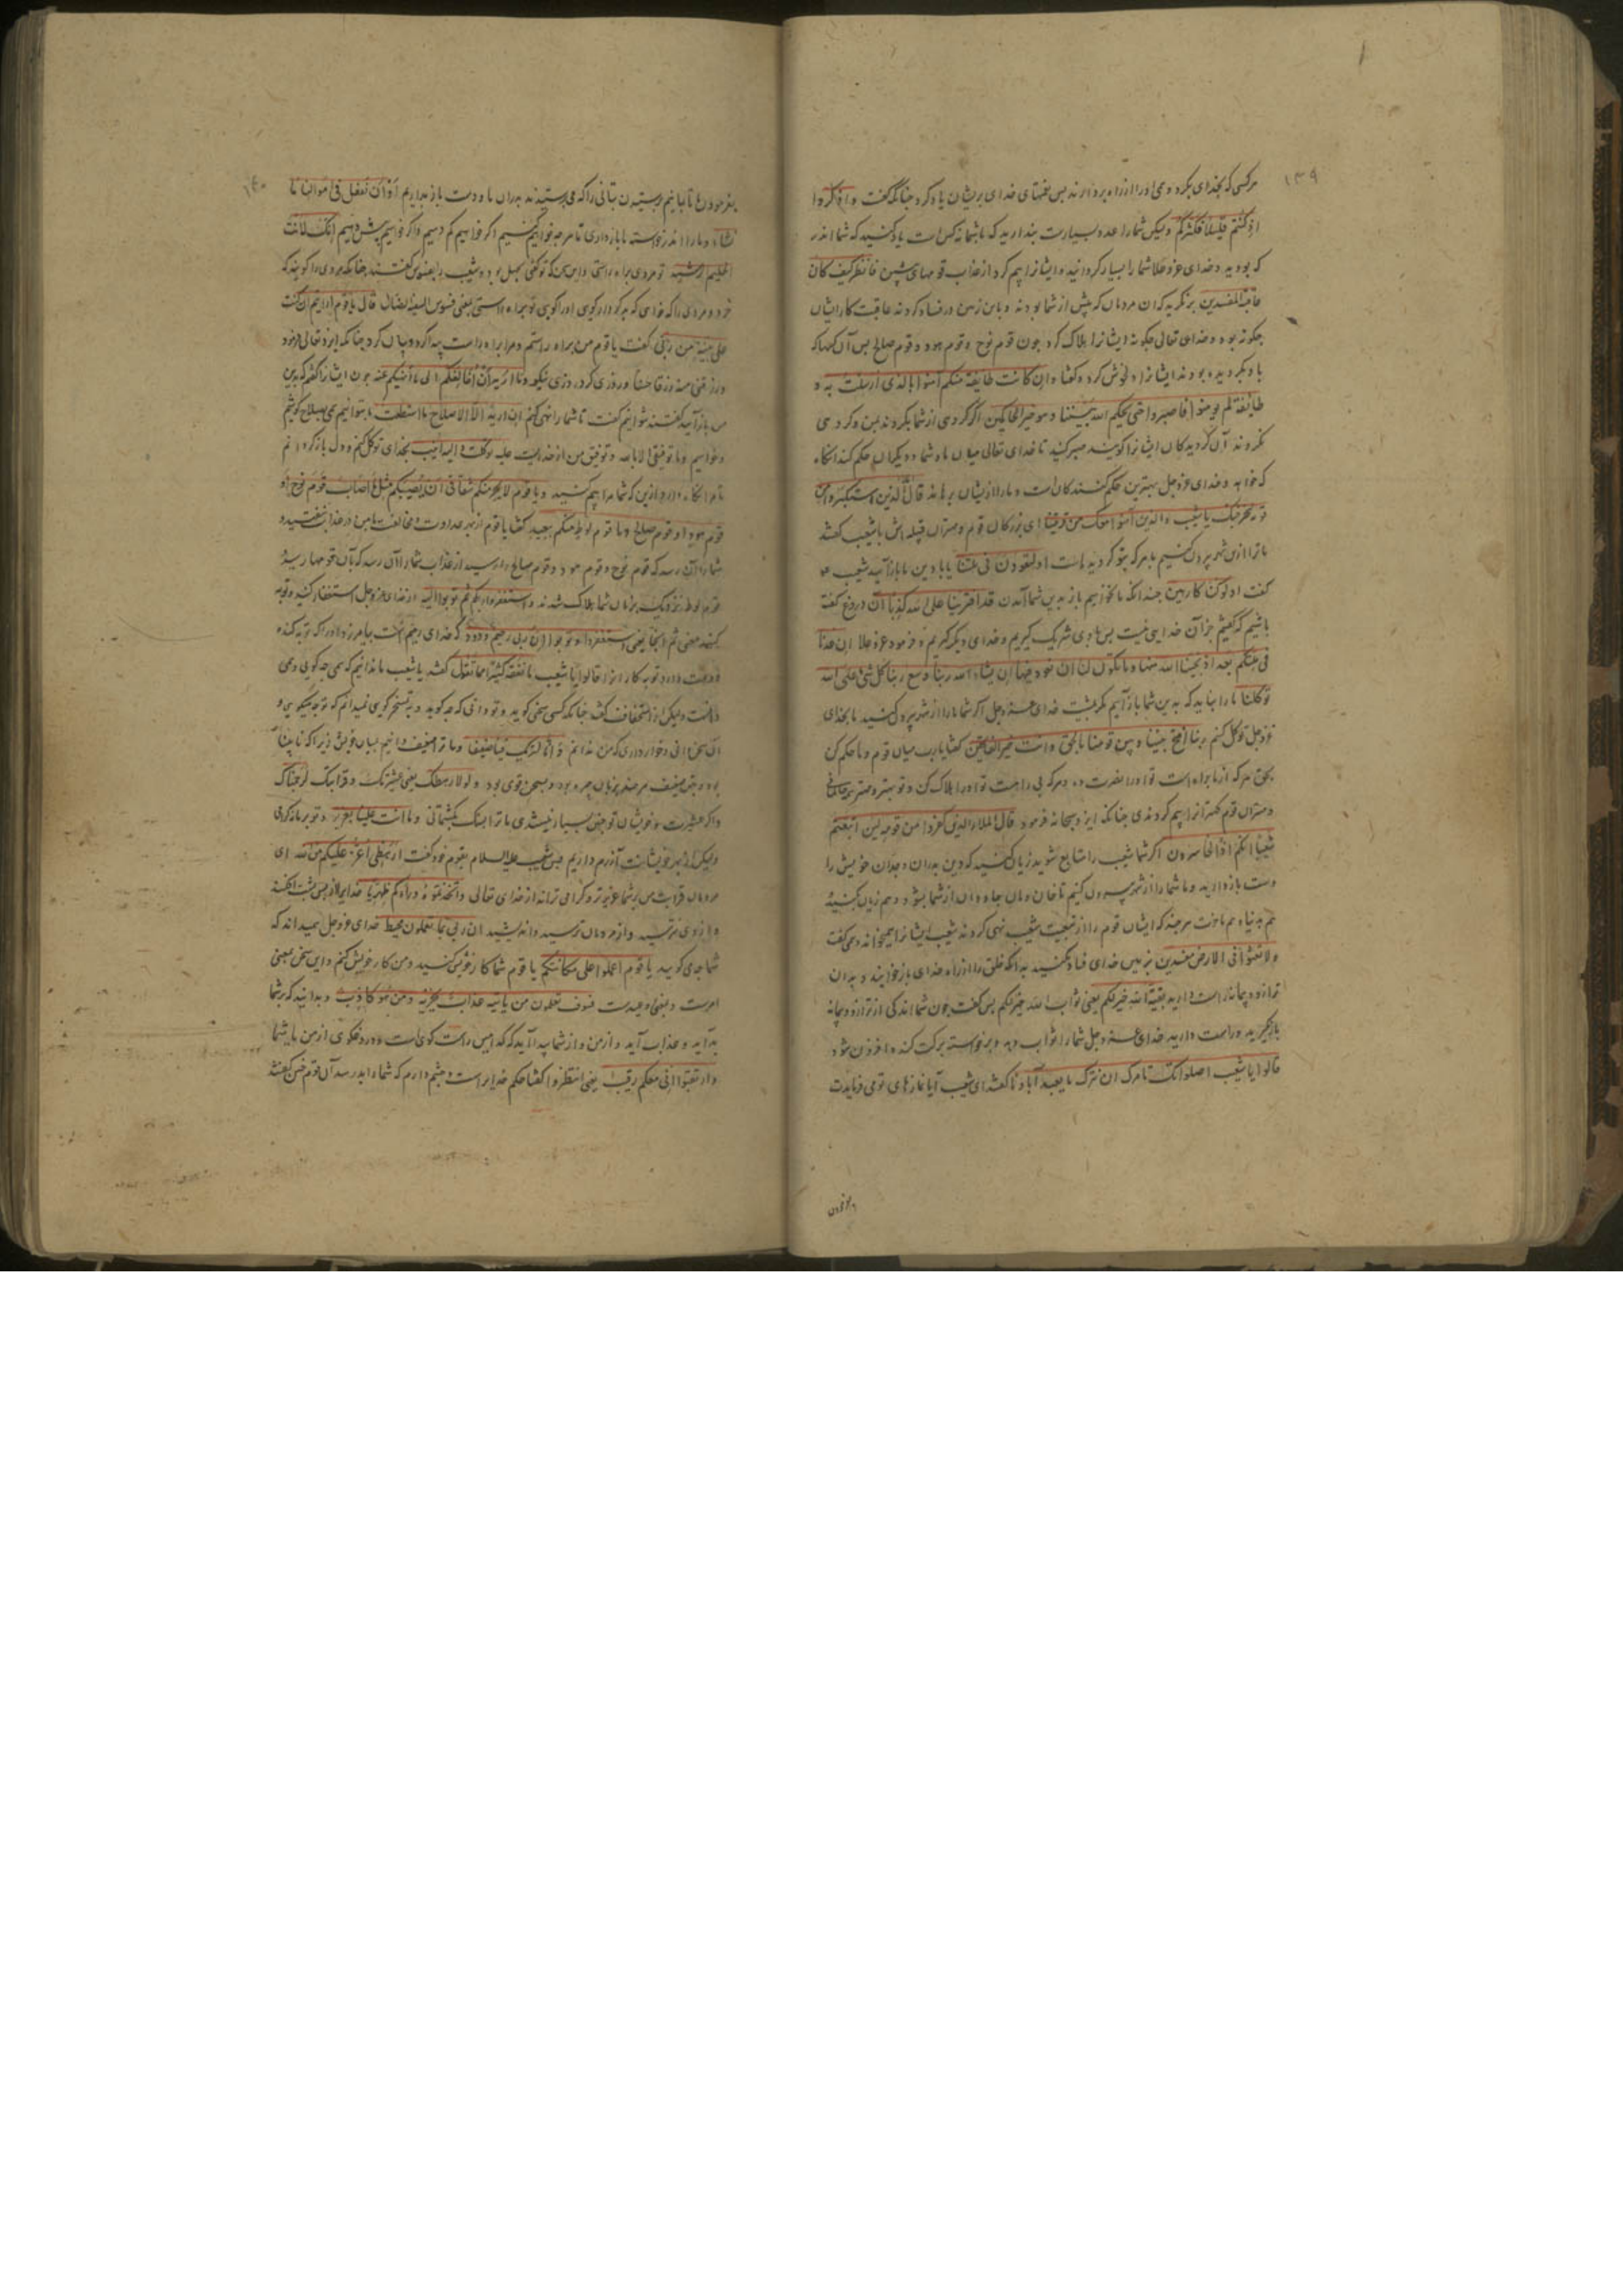 ۱۳۹
هرکسی که بخدای بکرود وی اورا از راه بردارند بس نعمتهای خدای بریشان یاد کرد چنانکه گفت واذکروا
اذ کنتم قلیلا فکثرکم ولیکن شمارا عدد بسیارست بندارید که باشما نه کس است یاد کنید که شما اندر
که بودید و خدای عز وعلا شما را بسیار کردانید و ایشانرا بیم کرد از عذاب قومهای بیشین فانظر کیف کان
عاقبة المفسدین بنکرید که ان مردمان که بیش از شما بودند و باین زمین در فساد کردند عاقبت کار ایشان
چکونه بود و خدای تعالی چکونه ایشانرا هلاک کرد چون قوم نوح و قوم هود و قوم صالح بس آن کسها که
باو بکرویده بودند ایشانرا دلخوش کرد و گفتا وان کانت طایفة منکم آمنوا بالذی ارسلت به و
طایفة لم یومنوا فاصبروا حتی یحکم الله بیننا وهو خیر الحاکمین اگر گروهی از شما بکروند بمن و گروهی
نکروند آن گرویدکان ایشانرا گویند صبر کنید تا خدای تعالی میان ما و شما و دیکران حکم کند انکاه
که خواهد و خدای عز وجل بهترین حکم کنندکان است و مارا از ایشان برهاند قال الذین استکبروا من
قومه لنخرجنک یا شعیب والذین آمنوا معک من قریتنا ای بزرکان قوم و مهتران قبیله اش با شعیب گفتند
ما ترا ازین شهر بیرون کنیم با هر که بتو کرویده است او لتعودن فی ملتنا یا با دین ما باز آیید شعیب
گفت اولو کنا کارهین چندانکه ما نخواهیم باز بدین شما آمدن قد افترینا علی الله کذبا آن دروغ گفته
باشیم که گفتیم جز آن خدایی نیست بس باوی شریک گیریم و خدای دیکر گیریم و فرمود عز وعلا ان عدنا
فی ملتکم بعد اذ نجینا الله منها وما یکون لنا ان نعود فیها الا ان یشاء الله ربنا وسع ربنا کل شیء علی الله
توکلنا مارا نباید که بدین شما باز آییم مکر بمشیت خدای عز وجل اکر شما مارا از شهر بیرون کنید ما بخدای
عز وجل توکل کنیم ربنا افتح بیننا وبین قومنا بالحق وانت خیر الفاتحین گفتا یارب میان قوم و ما حکم کن
بحق هر که از ما براه است تو اورا نصرت ده و هر که بی راهست تو اورا هلاک کن و تو بهتر و مهتر
و مهتران قوم کهترانرا بیم کردندی چنانکه ایزد سبحانه فرمود قال الملاء الذین کفروا من قومه لئن اتبعتم
شعیبا انکم اذا لخاسرون اکر شما شعیب را متابع شوید زیان کنید که دین بدران و جدان خویش را
دست بازدارید و ما شما را از شهر بیرون کنیم تا خان و مان جاه و مال از شما بشود و هم زیان کنید
هم بدنیا و هم باخرت هرچند که ایشان قوم را از تبعیت شعیب نهی کردند شعیب ایشانرا همیخواند و می گفت
ولا تعثوا فی الارض مفسدین بر زمین خدای فساد مکنید بدانکه خلق را از راه خدای بازخوانید و بدان
ترازو و پیمانه راست دارید بقیة الله خیر لکم یعنی ثواب الله خیر لکم بس گفت چون شما اندکی از ترازو و پیمانه
بازگیرید و راست دارید خدای عز وجل شما را ثواب دهد و برخواسته برکت کند و افزون شود
قالوا یا شعیب اصلواتک تامرک ان نترک ما یعبد آباونا گفتند ای شعیب آیا نمازهای تو می فرمایدت
۱۴۰
بفرمودن ما تا بمانیم پرستیدن بتانی را که می پرستیدند بدران ما و دست بازبداریم او ان نفعل فی اموالنا ما
نشاء و مارا اندر خواسته ما بازداری تا هرچه خواهیم کنیم اکر خواهیم کم دهیم و اکر خواهیم بیش دهیم انک لانت
الحلیم الرشید تو مردی براه راستی و این سخن که تو گفتی جهل بود و شعیب را بافسوس گفتند چنانکه مردی را کویند که
علی بینة من ربی گفت یا قوم من براه راستم و مرا براه راست بیدا کرد و بیان کرد چنانکه ایزد تعالی فرمود
ورزقنی منه رزقا حسنا و روزی کرد روزی نیکو وما ارید ان اخالفکم الی ما انهیکم عنه چون ایشانرا گفتم که بدین
من بازآیید گفتند نتوانیم گفت تا شما را نهی کنم ان ارید الا الاصلاح ما استطعت
وما توفیقی الا بالله و توفیق من از خداست علیه توکلت والیه انیب بخدای توکل کنم و دل باز کردانم
ویا قوم لا یجرمنکم شقاقی ان یصیبکم مثل ما اصاب قوم نوح او
قوم هود او قوم صالح وما قوم لوط منکم ببعید گفتا یا قوم از بهر عداوت و مخالفت با من در عذاب میفتید و
شما را آن رسد که قوم نوح و قوم هود و قوم صالح را رسید از عذاب شما را آن رسد که بآن قومها رسید
قوم لوط نزدیک بزمان شما هلاک شدند واستغفروا ربکم ثم توبوا الیه از خدای عز وجل استغفار کنید و توبه
کنید معنی ثم اینجا یعنی استغفروا وتوبوا ان ربی رحیم ودود که خدای رحیم است بیامرزد اورا که توبه کنده
و دوست دارد توبه کارانرا قالوا یا شعیب ما نفقه کثیرا مما تقول گفتند یا شعیب ما ندانیم که همی چه کویی و می
دانست ولیکن از استخفاف گفتند چنانکه کسی سخنی کوید و تو دانی که چه کوید و به تسخر کوی نمیدانم که تو چه میکویی و
آن سخن دانی و خوار داری که من ندانم وانا لنریک فینا ضعیفا و ما ترا ضعیف دانیم میان خویش زیرا که نابینا
بود و بتن ضعیف هرچند بزبان چیره بود و بسخن قوی بود ولولا رهطک یعنی عشیرتک و قرابتک لرجمناک
و اکر عشیرت و خویشان تو چنین بسیار نیستندی ما ترا بسنک بکشتمانی وما انت علینا بعزیز و تو بر ما نه کرامی
ولیکن از بهر خویشانت آزرم داریم بس شعیب علیه السلام بقوم خود گفت ارهطی اعز علیکم من الله ای
مردمان قرابت من بر شما عزیزتر و کرامی تراند از خدای تعالی واتخذتموه وراءکم ظهریا خدایرا از بس بشت افکنید
و از وی نترسید و از مردمان ترسید و اندیشید ان ربی بما تعملون محیط خدای عز وجل همیداند که
شما چه می کویید یا قوم اعملوا علی مکانتکم یا قوم شما کار خویش کنید و من کار خویش کنم و این سخن بمعنی
امرست و بمعنی وعیدست فسوف تعلمون من یاتیه عذاب یخزیه ومن هو کاذب و بدانید که بر شما
بد آید و عذاب آید و از من و از شما بیدا آید که کدامین راست کوی است و دروغکوی از من یا شما
وارتقبوا انی معکم رقیب یعنی انتظروا گفتا حکم خدایراست و چشم دارم که شما را بد رسد آن قوم خبر گفتند